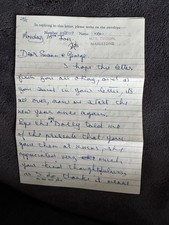 In replying to this letter, please write on the envelope:
Number Name
Monday 14th Jan,
Dear Susan & George
I hope this letter
finds you all okay, and as
you said in your letter, it's
all over, now we start the
new year once again.
told me
of the presents that you
gave them at xmas, she
appreciates very much
your kind thoughtfulness
I do, thanks it makes